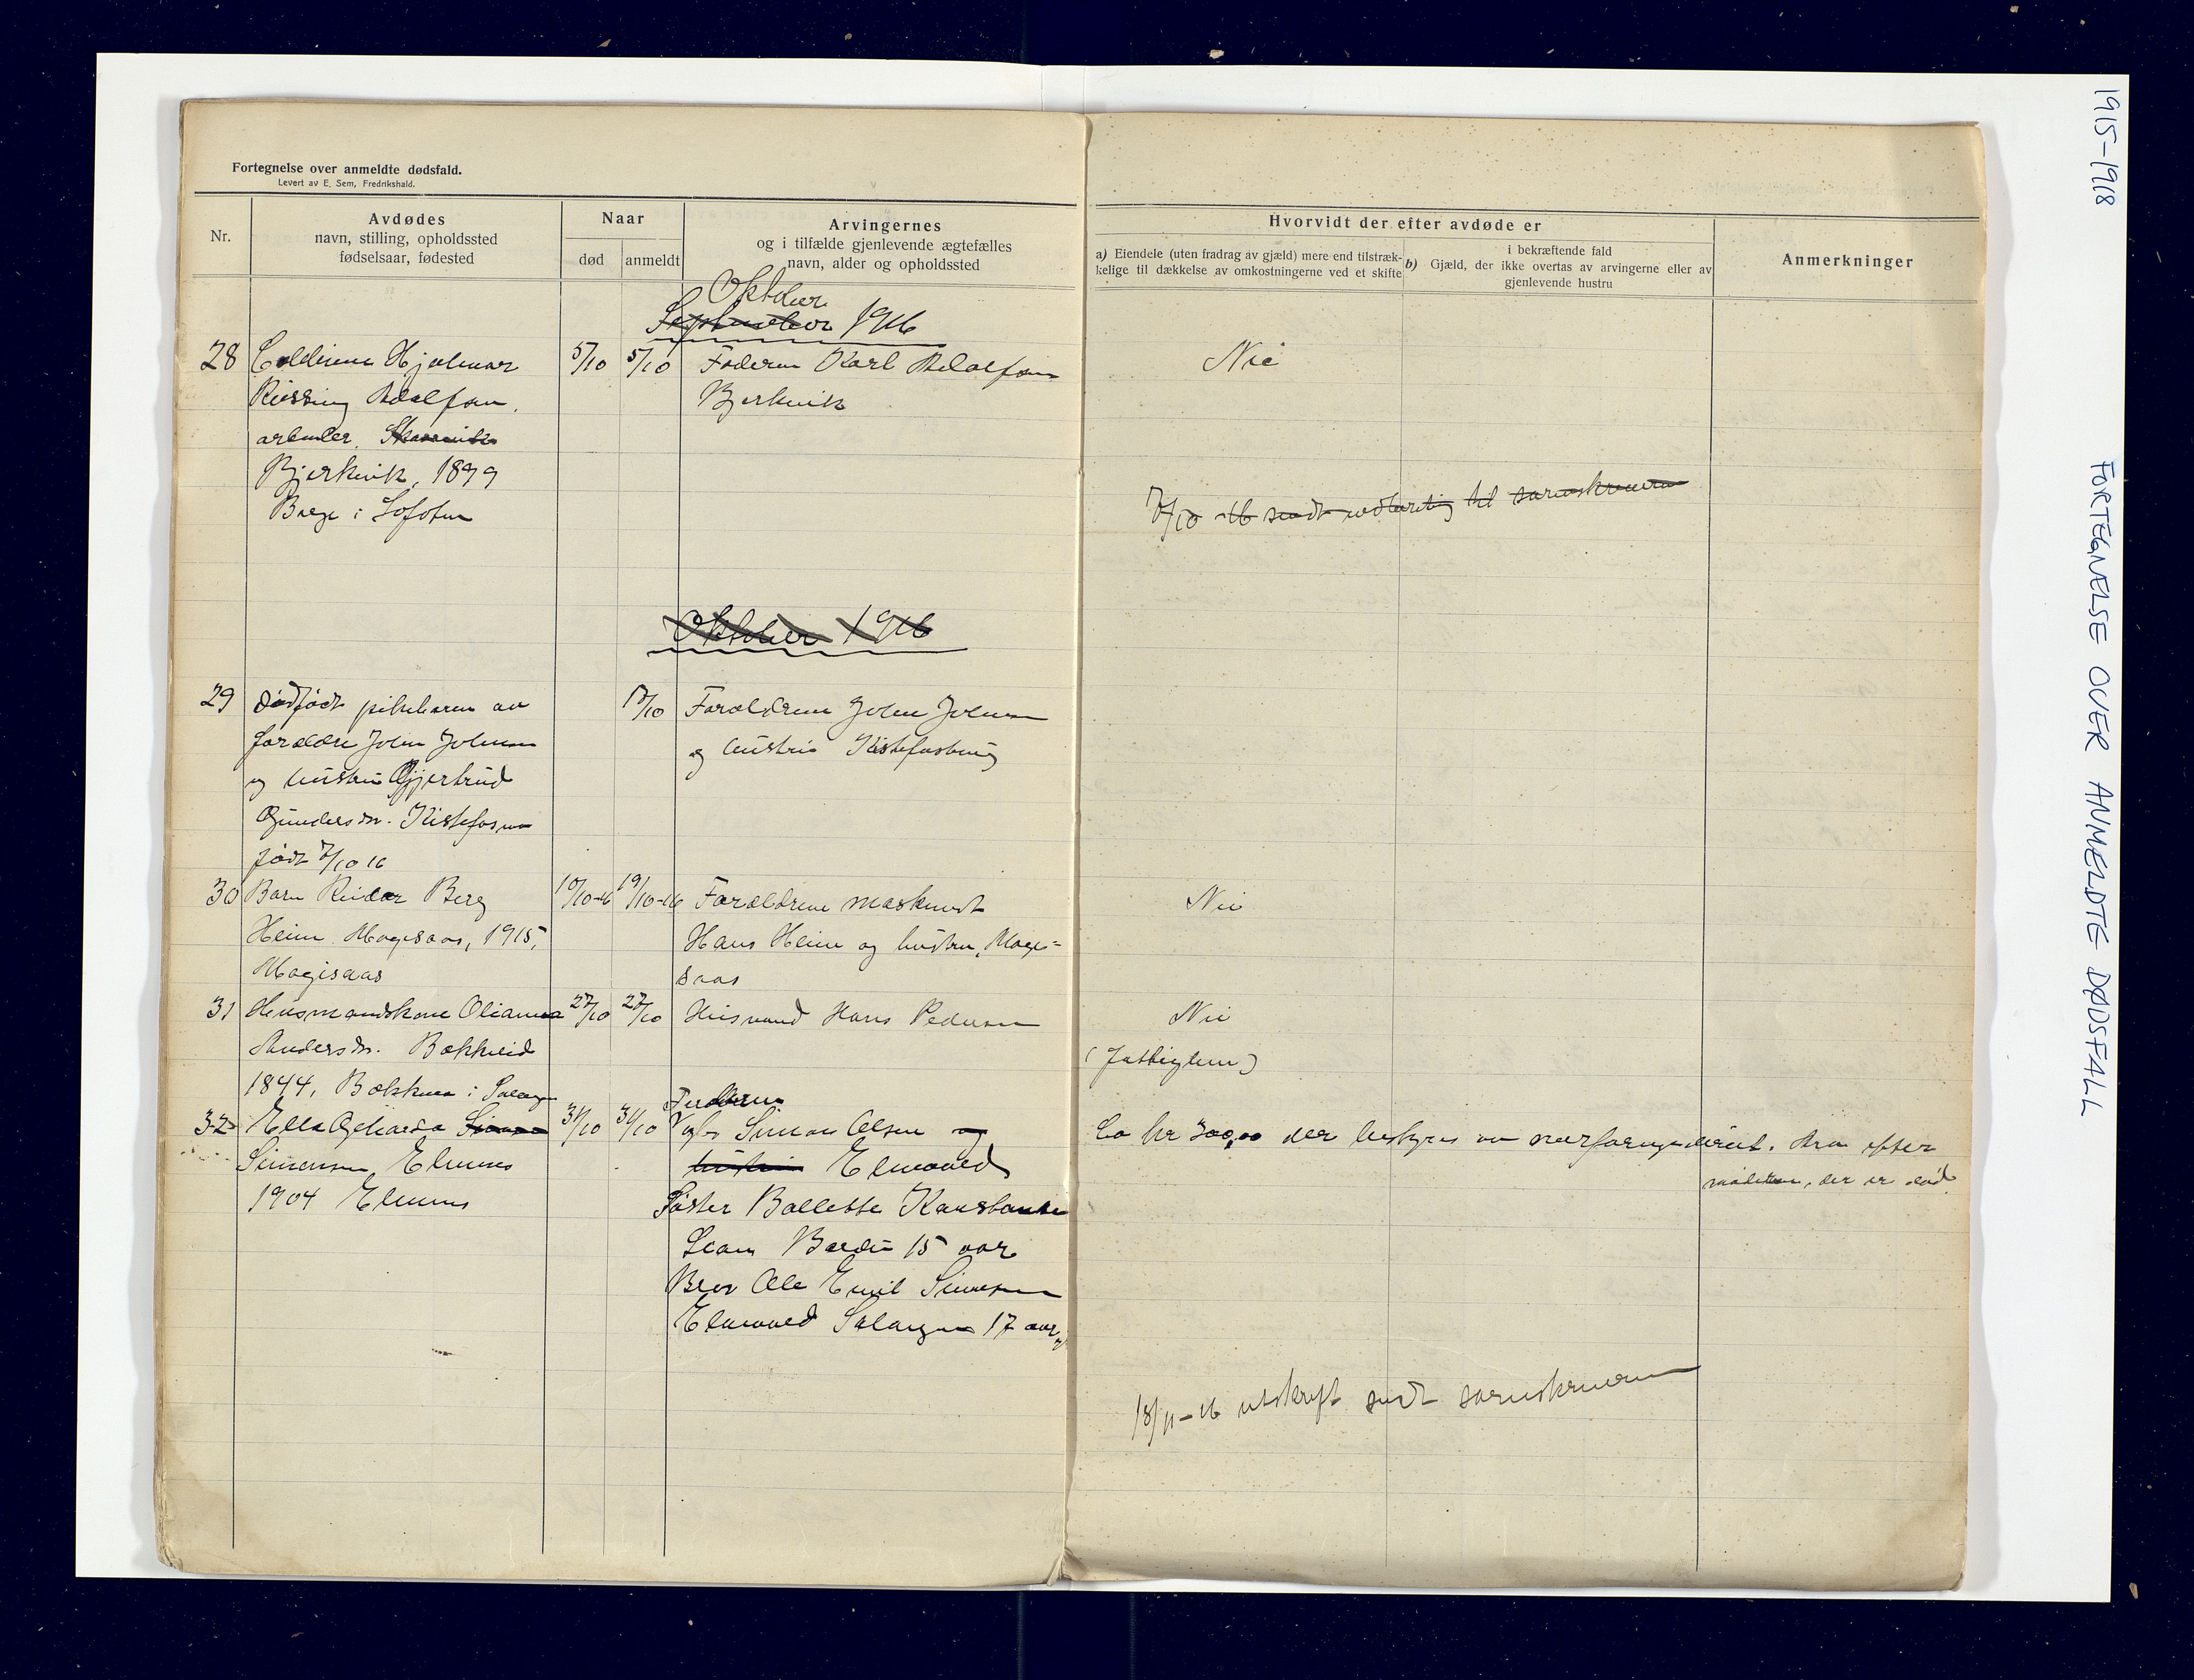 1915-1918 FORTEGNELSE OVER ANMELDTE DØDSFALL
Fortegnelse over anmeldte dødsfald.
Levert av E. Sem, Fredrikshald.
Nr.
Avdødes
navn, stilling, opholdssted
fødselsaar, fødested
Naar
død
anmeldt
Arvingernes
og i tilfælde gjenlevende ægtefælles
navn, alder og opholdssted
Hvorvidt der efter avdøde er
a) Eiendele (uten fradrag av gjæld) mere end tilstræk-
kelige til dækkelse av omkostningerne ved et skifte
b) i bekræftende fald
Gjæld, der ikke overtas av arvingerne eller av
gjenlevende hustru
Anmerkninger
Oktober
September 1916
28 Hjalmar
Adolfsen
arbeider. 
Bjerkvik, 1899
Borge i Lofoten
5/10 5/10
Faderen Karl Adolfsen
Bjerkvik
Nei
7/10 -16 sendt til sorenskriveren
Oktober 1916
29 Dødfødt pikebarn av
forældre John Johnsen
og hustru Gjertrud
Gundersdr. Kistefosmo
født 7/10 16
17/10
Forældrene John Johnsen
og hustru
30 Barn Reidar Berg
Heim Mogisaas, 1915,
Mogisaas
10/10-16 19/10-16
Forældrene
Hans Heim og hustru, Mogi=
saas
Nei
31 Husmandskone Olianna
Andersdr. Bækkeid
1844, i Salangen
27/10 27/10
Husmand Hans Pedersen
Nei
32 Ella
Simonsen, Elvenes
1904 Elvenes
31/10 31/10
Faderen
Simon Olsen og
hustru Elvevold
Søster Ballette Konstanse
Bardu 15 aar
Bror Ole Emil Simonsen
Elvevold Salangen 17 aar
Ca kr 300,00 der bestyres av Arv efter
moderen, der er død.
18/11-16 utskrift sendt sorenskriveren